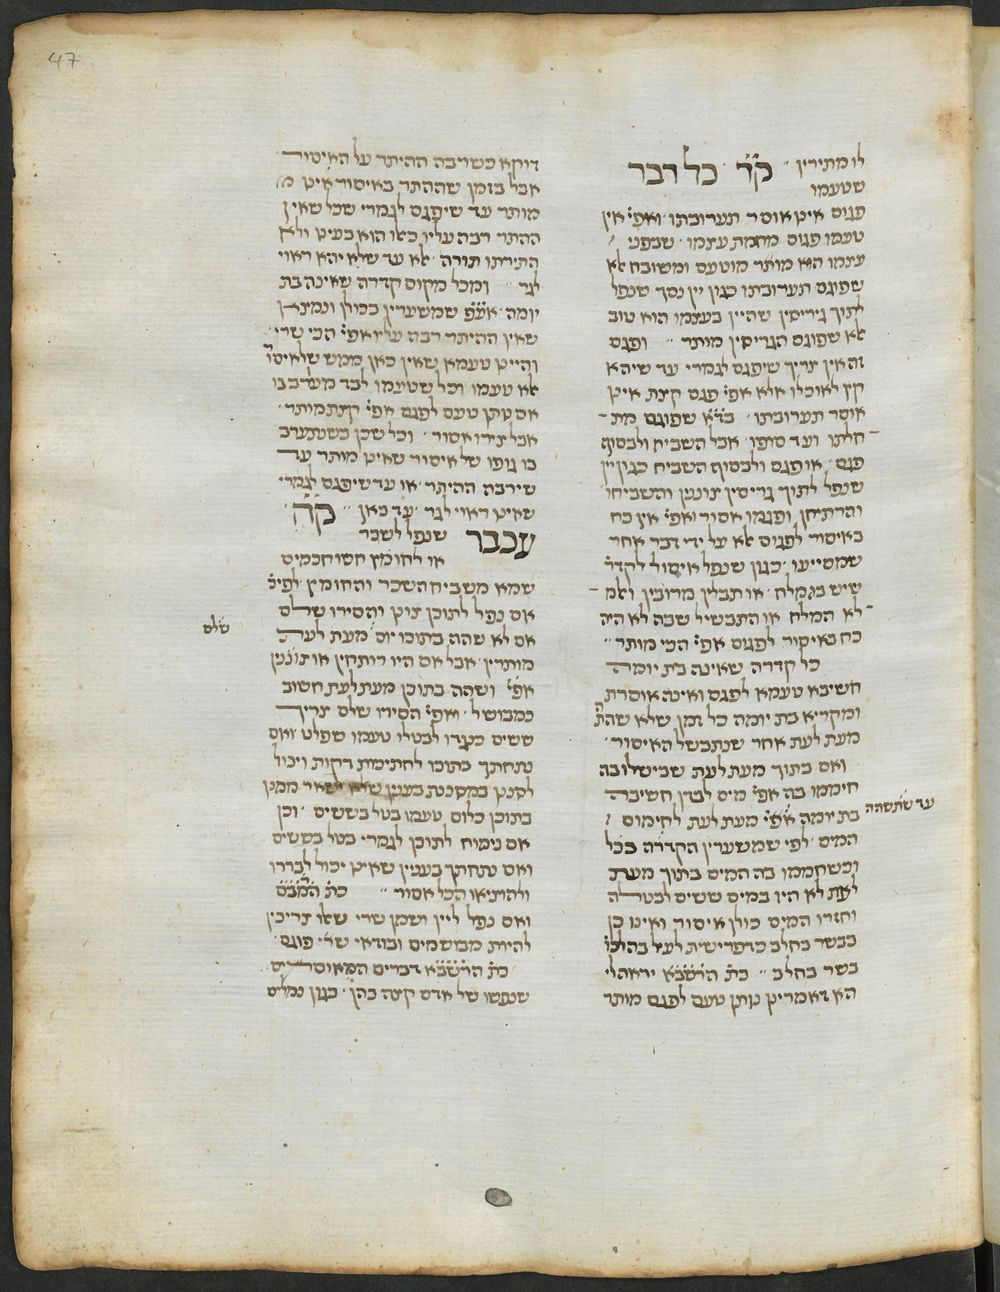 47
לו מתירין קד כל דבר
שטעמו
פגום אינו אוסר תערובתו ואפי' אין
טעמו פגום מחמת עצמו שבפני
עצמו הוא מותר מוטעם ומשובח אלא
שפוגם תערובתו כגון יין נסך שנפל
לתוך גריסין שהיין בעצמו הוא טוב
אלא שפוגם הגריסין מותר ופגם
זה אין צריך שיפגם לגמרי עד שיהא
קץ לאוכלו אלא אפי' פגם קצת אינו
אוסר תערובתו בד"א שפוגם מת
חלתו ועד סופו אבל השביח ולבסוף
פגם או פגם ולבסוף השביח כגון יין
שנפל לתוך גריסין צונגין והשביחו
והרתיחן ופגמו אסור ואפי' אין כח
באיסור לפגום אלא על ידי דבר אחר
שמסייעו כגון שנפל איסור לקדר'
שיש בה מלח או תבלין מרובין ואלמ
לא המלח או התבשיל שבה לא היה
כח באיסור לפגום אפי' הכי מותר
כל קדרה שאינה בת יומה
חשיבא טעמא לפגם ואינה אוסרת
ומקריא בת יומה כל זמן שלא שהתה
מעת לעת אחר שנתבשל האיסור
ואם בתוך מעת לעת שבישלו בה
חיממו בה אפי' מים לבדן חשיבה
בת יומה אפי' מעת לעת לחימום
עד שתשהה
המים לפי שמשערין הקדרה בכל
וכשחממו בה המים בתוך מעת
לעת לא היו במים ששים לבטלה
וחזרו המים כולן איסור ואינו כן
בבשר בחלב כדפרישית לעיל בהלכו'
בשר בחלב כת' הרשב"א יראה לי
הא דאמרינן נותן טעם לפגם מותר
דוקא כשרבה ההיתר על האיסור
אבל בזמן שההתר באיסור אינו
מותר עד שיפגם לגמרי שכל שאין
ההתר רבה עליו כאלו הוא בעינו ולא
התירתו תורה אלא עד שלא יהא ראוי
לגר ומכל מקום קדרה שאינה בת
יומה אע"פ שמשערין בכולן ונמצאן
שאין ההיתר רבה עליו אפי' הכי שרי
והיינו טעמא שאין כאן ממש של איסור
אלא טעמו וכל שטעמו לבד מעורב בו
אם נותן טעם לפגם אפי' קצת מותר
אבל צירו אסור וכל שכן כשנתערב
בו גופו של איסור שאינו מותר עד
שירבה ההיתר או עד שיפגם לגמרי
שאינו ראוי לגר עד כאן קה
עכבר שנפל לשכר
או לחומץ חששו חכמים
שמא משביח השכר והחומץ לפיכ'
אם נפל לתוכן צונן והסירו שלם
שלם
אם לא שהה בתוכו יום מעת לעת
מותרין אבל אם היו רותחין או צונגין
אפי' ושהה בתוכן מעת לעת חשוב
כמבושל ואפי' הסירו שלם צריך
ששים כנגדו לבטלו טעמו שפלט ואם
נתחתך בתוכו לחתיכות דקות ויכול
לסננן במסננת בענין שלא ישאר ממנו
בתוכן כלום טעמו בטל בששים וכן
אם נימוח לתוכן לגמרי בטל בששים
ואם נתחתך בעניין שאינו יכול לבררו
ולהוציאו הכל אסור כת' הרמב"ם
ואם נפל ליין ושמן שרי שאלו צריכין
להיות מבושמים ובודאי שר' פוגם
כת' הרשב"א דברים המאוסים
שנפשו של אדם קצה בהן כגון נמלים